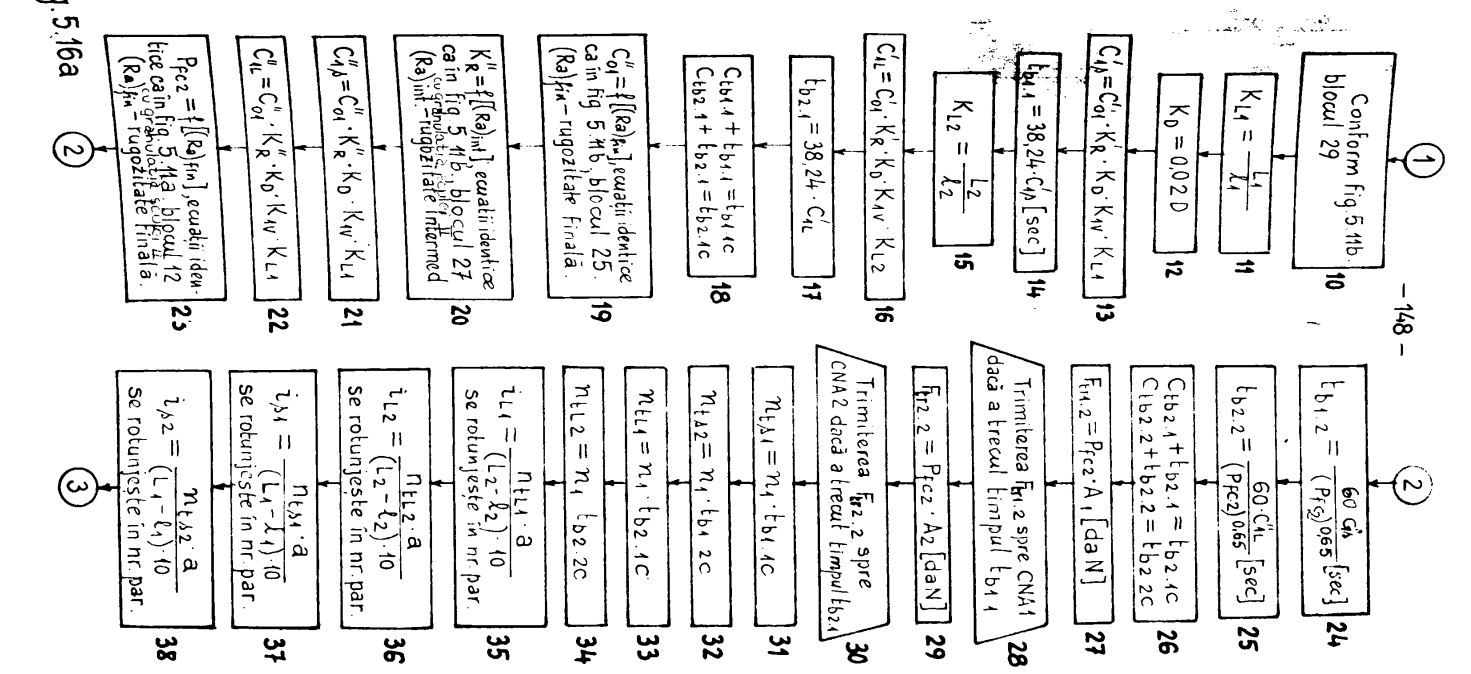 - 148 -
1
Conform fig. 5.11b.
blocul 29
10
K_L1 = L1 / l1
11
K_D = 0,02 D
12
C'_1s = C'_01 · K'_R · K_D · K_1V · K_L1
13
t_b1.1 = 38,24 · C'_1s [sec]
14
K_L2 = L2 / l2
15
C'_1L = C'_01 · K'_R · K_D · K_1V · K_L2
16
t_b2.1 = 38,24 · C'_1L
17
C_tb1.1 + t_b1.1 = t_b1.1c
C_tb2.1 + t_b2.1 = t_b2.1c
18
C''_01 = f[(Ra)fin], ecuatii identice
ca in fig 5.11b, blocul 25.
(Ra)fin - rugozitate finală.
19
K''_R = f[(Ra)int] ecuatii identice
ca in fig 5.11b, blocul 27
cu granulatia sculei II
(Ra)int - rugozitate intermed
20
C''_1s = C''_01 · K''_R · K_D · K_1V · K_L1
21
C''_1L = C''_01 · K''_R · K_D · K_1V · K_L1
22
P_fc2 = f[(Ra)fin], ecuatii iden-
tice ca in fig. 5.11a blocul 12
cu granulatia sculei II
(Ra)fin - rugozitate finală.
23
2
fig. 5.16a
2
t_b1.2 = 60 C'_1s / (P_fc2)^0,65 [sec]
24
t_b2.2 = 60 · C'_1L / (P_fc2)^0,65 [sec]
25
C_tb2.1 + t_b2.1 = t_b2.1c
C_tb2.2 + t_b2.2 = t_b2.2c
26
F_tr1.2 = P_fc2 · A1 [daN]
27
Trimiterea F_tr1.2 spre CNA1
dacă a trecut timpul t_b1.1
28
F_tr2.2 = P_fc2 · A2 [daN]
29
Trimiterea F_tr2.2 spre
CNA2 dacă a trecut timpul t_b2.1
30
n_ts1 = n1 · t_b1.1c
31
n_ts2 = n1 · t_b1.2c
32
n_tL1 = n1 · t_b2.1c
33
n_tL2 = n1 · t_b2.2c
34
i_L1 = n_tL1 · a / (L2 - l2) · 10
se rotunjește în nr. par.
35
i_L2 = n_tL2 · a / (L2 - l2) · 10
se rotunjește în nr. par.
36
i_s1 = n_ts1 · a / (L1 - l1) · 10
se rotunjește în nr. par.
37
i_s2 = n_ts2 · a / (L1 - l1) · 10
se rotunjește în nr. par.
38
3